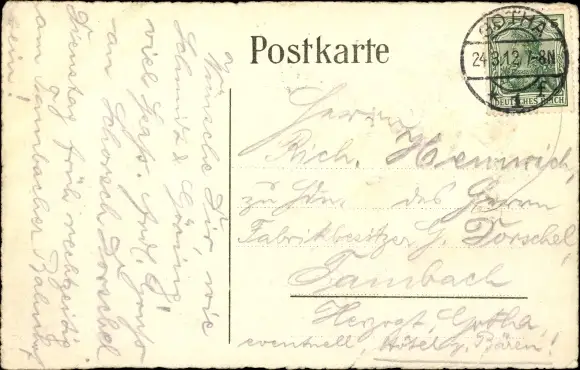 Postkarte
GOTHA
24.3.12.7-8N
* 1 f
5
DEUTSCHES REICH
Herrn
Rich. Hennrich,
zu Hdn. des Herrn
Fabrikbesitzer G. Dorschel,
Tambach
Herzogt. Gotha,
eventuell, Hotel z. Bären!
Wünsche Dir, wie
Schmitz & Göring
viel
an Schorsch Dorschel
Dienstag früh rechtzeitig
am Tambacher Bahnhof
sein!